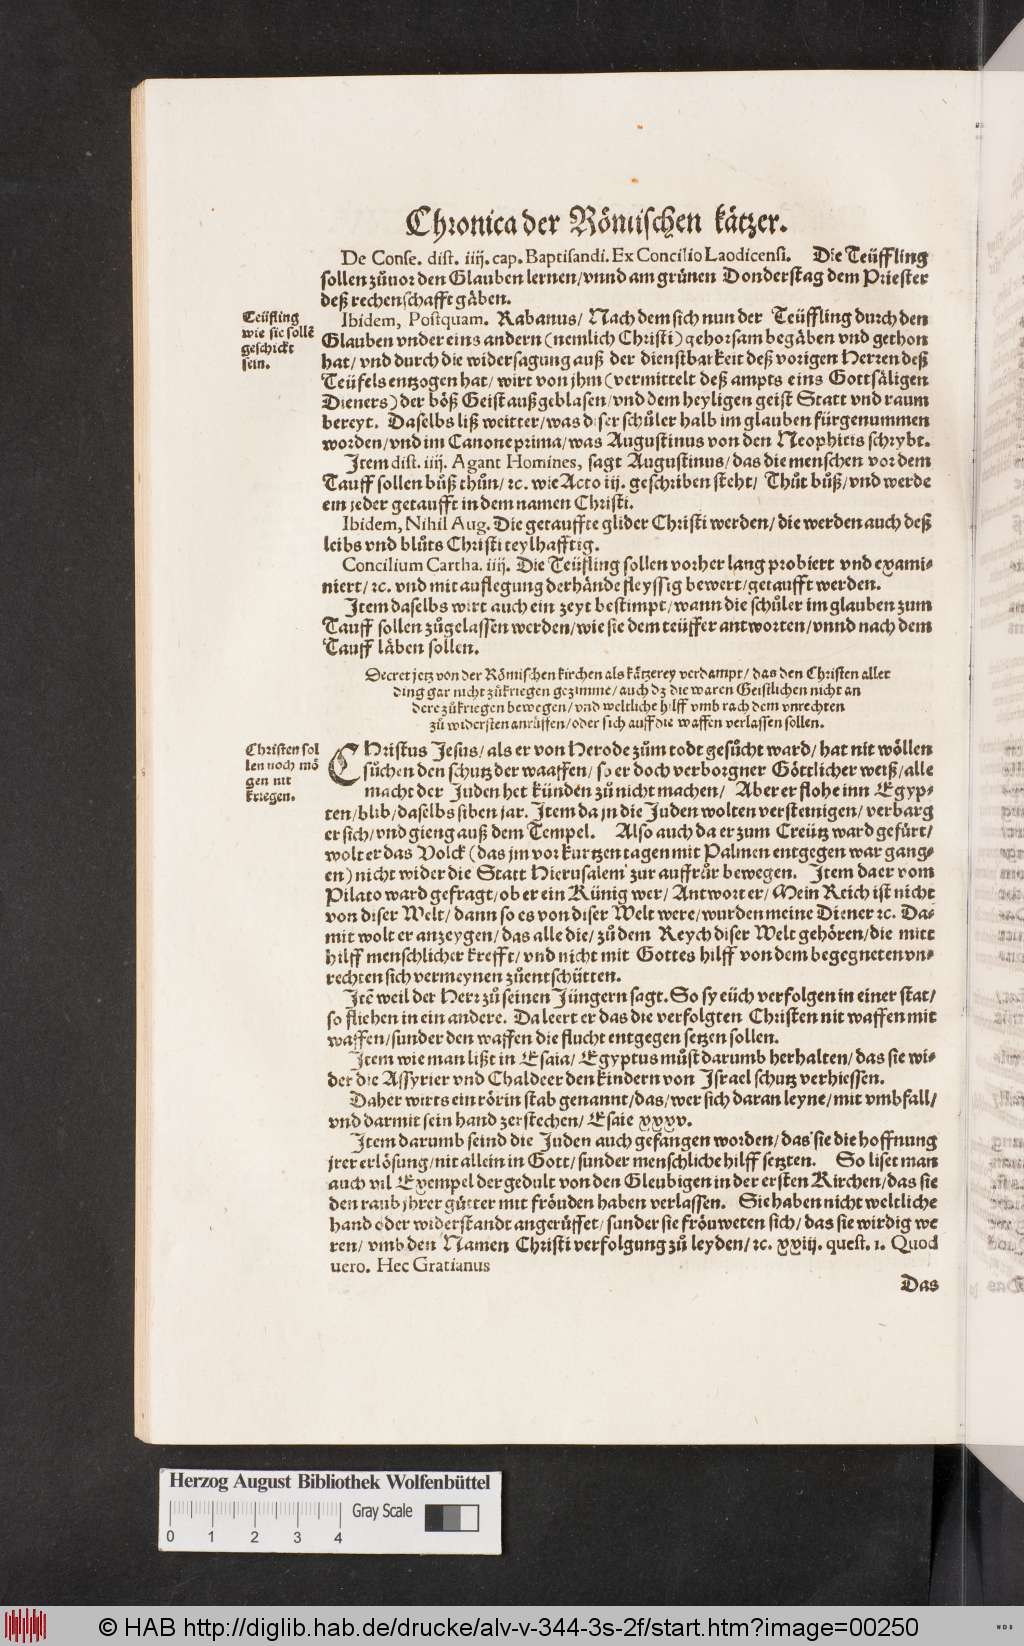 Chronica der Römischen kätzer.
De Conse. dist. iiij. cap. Baptisandi. Ex Concilio Laodicensi. Die Teüffling
sollen zůuor den Glauben lernen/vnnd am grünen Donderstag dem Priester
deß rechenschafft gäben.
Teüfling
wie sie sollẽ
geschickt
sein.
Ibidem, Postquam. Rabanus/ Nach dem sich nun der Teüffling durch den
Glauben vnder eins andern (nemlich Christi) gehorsam begäben vnd gethon
hat/ vnd durch die widersagung auß der dienstbarkeit deß vorigen Herren deß
Teüfels entzogen hat/ wirt von jhm (vermittelt deß ampts eins Gottsäligen
Dieners) der böß Geist außgeblasen/vnd dem heyligen geist Statt vnd raum
bereyt. Daselbs liß weitter/was diser schůler halb im glauben fürgenummen
worden/vnd im Canone prima/was Augustinus von den Neophitis schrybt.
Jtem dist. iiij. Agant Homines, sagt Augustinus/das die menschen vor dem
Tauff sollen bůß thůn/ ꝛc. wie Acto iij. geschriben steht/ Thůt bůß/vnd werde
ein jeder getaufft in dem namen Christi.
Ibidem, Nihil Aug. Die getauffte glider Christi werden/ die werden auch deß
leibs vnd blůts Christi teylhafftig.
Concilium Cartha. iiij. Die Teüfling sollen vorher lang probiert vnd exami-
niert/ ꝛc. vnd mit auflegung der hände fleyssig bewert/getaufft werden.
Jtem daselbs wirt auch ein zeyt bestimpt/wann die schůler im glauben zum
Tauff sollen zůgelassen werden/wie sie dem teüffer antworten/vnnd nach dem
Tauff läben sollen.
Decret jetz von der Römischen kirchen als kätzerey verdampt/ das den Christen aller
ding gar nicht zůkriegen gezimme/auch dz die waren Geistlichen nicht an
dere zůkriegen bewegen/vnd weltliche hilff vmb rach dem vnrechten
zů widersten anrůffen/oder sich auff die waffen verlassen sollen.
Christen sol
len noch mö
gen nit
kriegen.
CHristus Jesus/ als er von Herode zům todt gesůcht ward/ hat nit wöllen
sůchen den schutz der waaffen/ so er doch verborgner Göttlicher weiß/alle
macht der Juden het künden zů nicht machen/ Aber er flohe inn Egyp-
ten/blib/daselbs siben jar. Jtem da jn die Juden wolten versteinigen/ verbarg
er sich/vnd gieng auß dem Tempel. Also auch da er zum Creütz ward gefürt/
wolt er das Volck (das jm vor kurtzen tagen mit Palmen entgegen war gang-
en) nicht wider die Statt Hierusalem zur auffrůr bewegen. Jtem da er vom
Pilato ward gefragt/ob er ein Künig wer/ Antwort er/ Mein Reich ist nicht
von diser Welt/ dann so es von diser Welt were/wurden meine Diener ꝛc. Da-
mit wolt er anzeygen/ das alle die/ zů dem Reych diser Welt gehören/die mitt
hilff menschlicher krefft/ vnd nicht mit Gottes hilff von dem begegneten vn-
rechten sich vermeynen zůentschütten.
Jtẽ weil der Herr zů seinen Jüngern sagt. So sy eüch verfolgen in einer stat/
so fliehen in ein andere. Da leert er das die verfolgten Christen nit waffen mit
waffen/sunder den waffen die flucht entgegen setzen sollen.
Jtem wie man lißt in Esaia/ Egyptus můst darumb herhalten/ das sie wi-
der die Assyrier vnd Chaldeer den kindern von Israel schutz verhiessen.
Daher wirts ein rörin stab genannt/das/wer sich daran leyne/mit vmbfall/
vnd darmit sein hand zerstechen/ Esaie xxxv.
Jtem darumb seind die Juden auch gefangen worden/das sie die hoffnung
jrer erlösung/nit allein in Gott/ sunder menschliche hilff setzten. So liset man
auch vil Exempel der gedult von den Gleubigen in der ersten Kirchen/das sie
den raub jhrer gütter mit fröuden haben verlassen. Sie haben nicht weltliche
hand oder widerstandt angerůffet/sunder sie fröuweten sich/das sie wirdig we
ren/ vmb den Namen Christi verfolgung zů leyden/ ꝛc. xxiij. quest. 1. Quod
uero. Hec Gratianus
Das
Herzog August Bibliothek Wolfenbüttel
Gray Scale
0 1 2 3 4
© HAB http://diglib.hab.de/drucke/alv-v-344-3s-2f/start.htm?image=00250